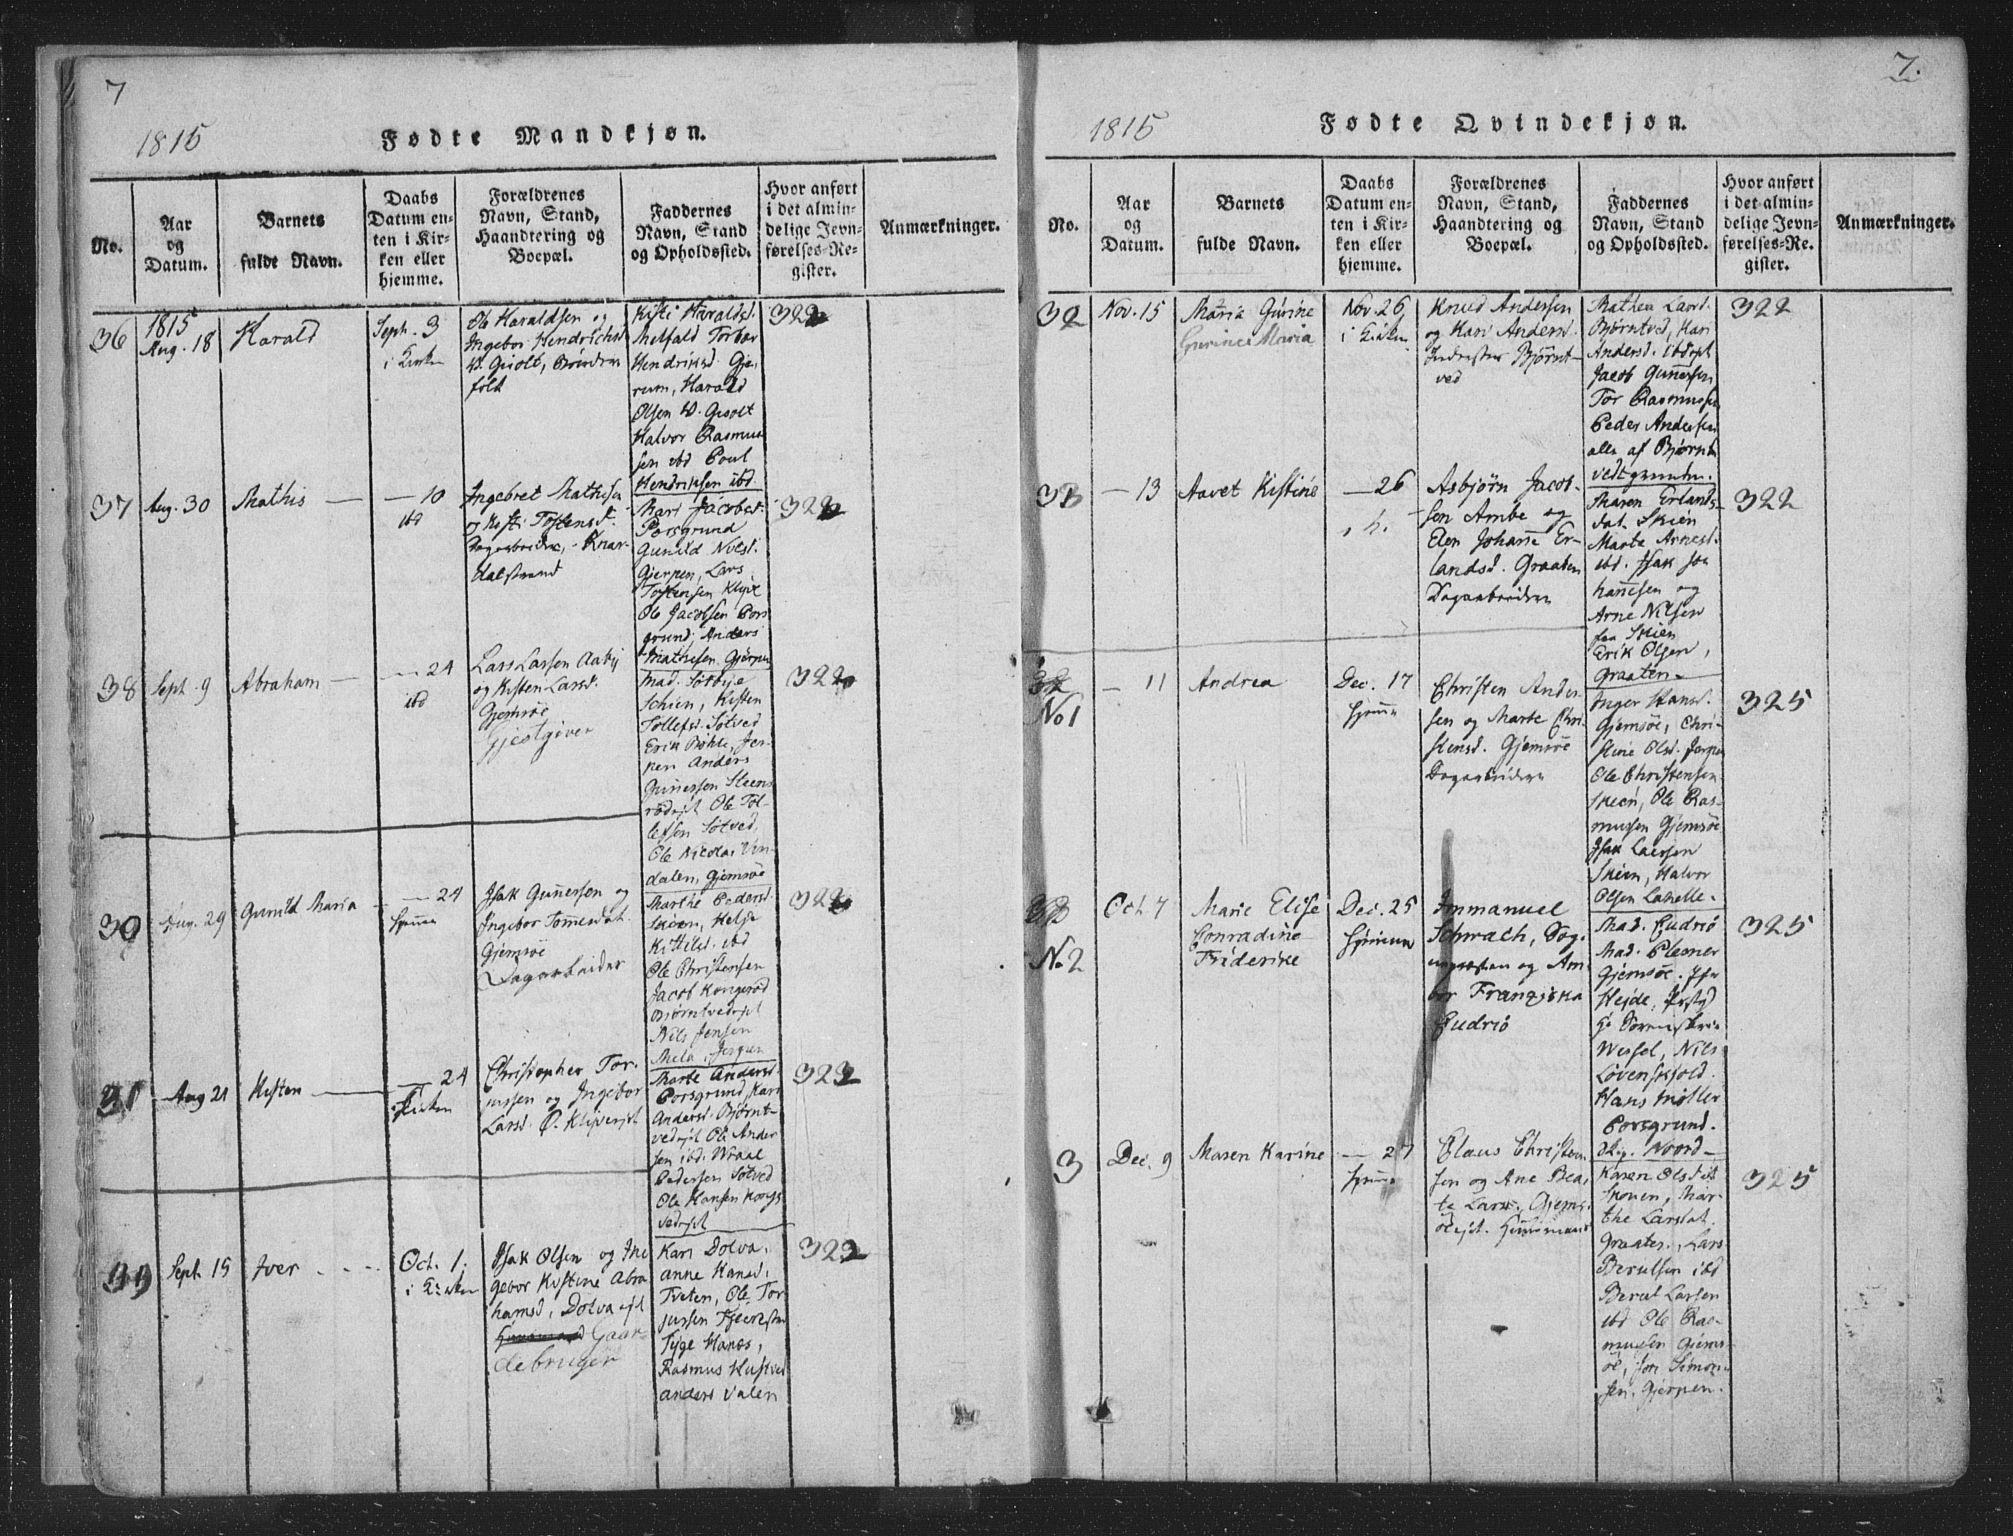 7
1815
Fødte Mandkjøn.
No.
Aar
og
Datum.
Barnets
fulde Navn.
Daabs
Datum en-
ten i Kir-
ken eller
hjemme.
Forældrenes
Navn, Stand,
Haandtering og
Boepæl.
Faddernes
Navn, Stand
og Opholdssted.
Hvor anført
i det almin-
delige Jevn-
førelses-Re-
gister.
Anmærkninger.
36
1815
Aug. 18
Harald
Seph. 3
i Kirken
Ole Haraldsen og
Ingebor Hendrichsd
Kisti Haraldsd.
Melfald Torber
Hendriksd. Gje-
rum, Harald
Olsen
Halvor Rasmus
sen ibd Poul
Hendriksen ibd
322
37
Aug. 30
Mathis
— 10
ibd
Ingebret Mathisen
og Kisti Tostensd.
Knar-
dalstrand
Mari Jacobsd.
Porsgrund
Gunild Nilsd.
Gjerpen, Lars
Tostensen Klype
Ole Jacobsen Pors
grund, Anders
Mathisen Gjerpen
322
38
Sept. 9
Abraham
— 24
ibd
Lars Larsen
og Kisten Larsd.
Gjemsøe
Gjestgiver
Mad. Søtbye
Schien, Kisten
Tollefsd. Søtved
Erik Bøhle, Jer-
pen Anders
Gunersen Steens
rødejt Ole Tol-
lefsen Søtved,
Ole Nicolai Vin-
dalen, Gjemsøe
322
30
Aug. 29
Gunild Maria
— 24
hjemme
Isak Gunersen og
Ingebor Tomesdat.
Gjemsøe
Dagarbeider
Marthe Pedersd.
Skien, Helje
Kittilsd. ibd
Ole Christensen
Jacob Kongerød
Bjørntvedejt
Nils Jensen
Mela, Jerpen
322
31
Aug 21
Kisten
— 24
i Kirken
Christopher Tor-
jussen og Ingebor
Larsd. Ø. Klyvejt
Marte Andersd.
Porsgrund, Kari
Andersd. Bjørnt-
vedejt Ole Ander
sen ibd. Wraal
Pedersen Søtved
Ole Hansen Kongs
vedejt
323
39
Sept. 15
Iver
Och. 1.
i Kirken
Isak Olsen og Ine
gebor Kistine Abra
hamsd, Dolva ejt
Gaar-
debruger
Kari Dolva,
anne Hansd,
Tveten, Ole Tor
jussen
Tyge Hanes,
Rasmus
anders Valen
323
7.
1815
Fødte Qvindekjøn.
No.
Aar
og
Datum.
Barnets
fulde Navn.
Daabs
Datum en-
ten i Kir-
ken eller
hjemme.
Forældrenes
Navn, Stand,
Haandtering og
Boepæl.
Faddernes
Navn, Stand
og Opholdssted.
Hvor anført
i det almin-
delige Jevn-
førelses-Re-
gister.
Anmærkninger.
32
Nov. 15
Maria Gurine
Gurine Maria
Nov. 26
i Kirken
Knud Andersen
og Kari Andersd.
Bjørnt-
ved
Mathea Larsd.
Bjørntvd, Kari
Andersd. ibd
Jacob Gunersen
Tor Rasmussen
Peder Andersen
alle af Bjørnt
vedtgrunden.
322
33
— 13
Aavet Kistine
— 26
Asbjørn Jacob-
sen Ambe og
Elen Johane Er-
landsd. Graaten
Dagarbeider
Maren Erlands-
dat. Skien
Marta Arnesd.
ibd. Isak Jo-
hannesen og
Arne Nilsen
fra Skien
Erik Olsen,
Graaten.
322
No 1
— 11
Andrea
Dec. 17
hjemme
Christen Ander-
sen og Marte Chri-
stensd. Gjemsøe
Dagarbeider
Inger Hansd.
Gjemsøe, Chri-
stine Olsd. Jerpen
Ole Christensen
Skien, Ole Ras-
mussen Gjemsøe
Isak Larsen
Skien, Halvor
Olsen Lahelle.
325
No 2
Och. 7
Marie Elise
Conradine
Friderike
Dec. 25
hjemme
Immanuel
Schwach, Sog-
nepresten og Am-
bor Franziska
Cudrio
Mad. Cudrio
Mad. Plesner
Gjemsøe. Jfr
Hejde.
Wessel, Nils
Løvenskjold.
Hans Møller
Porsgrund.
Noord
325
3
Dec. 9
Maren Karine
— 27
hjemme
Claus Christen
sen og Ane Bea-
te Larsd. Gjems-
øeejt. Huusmand
Karen Olsdat
Skouen, Mar-
the Larsdat.
Graaten, Lars
Berulsen ibd
Berut Larsen
ibd Ole Ras-
mussen Gjems
øe, Jon Simon-
sen. Gjerpen.
325